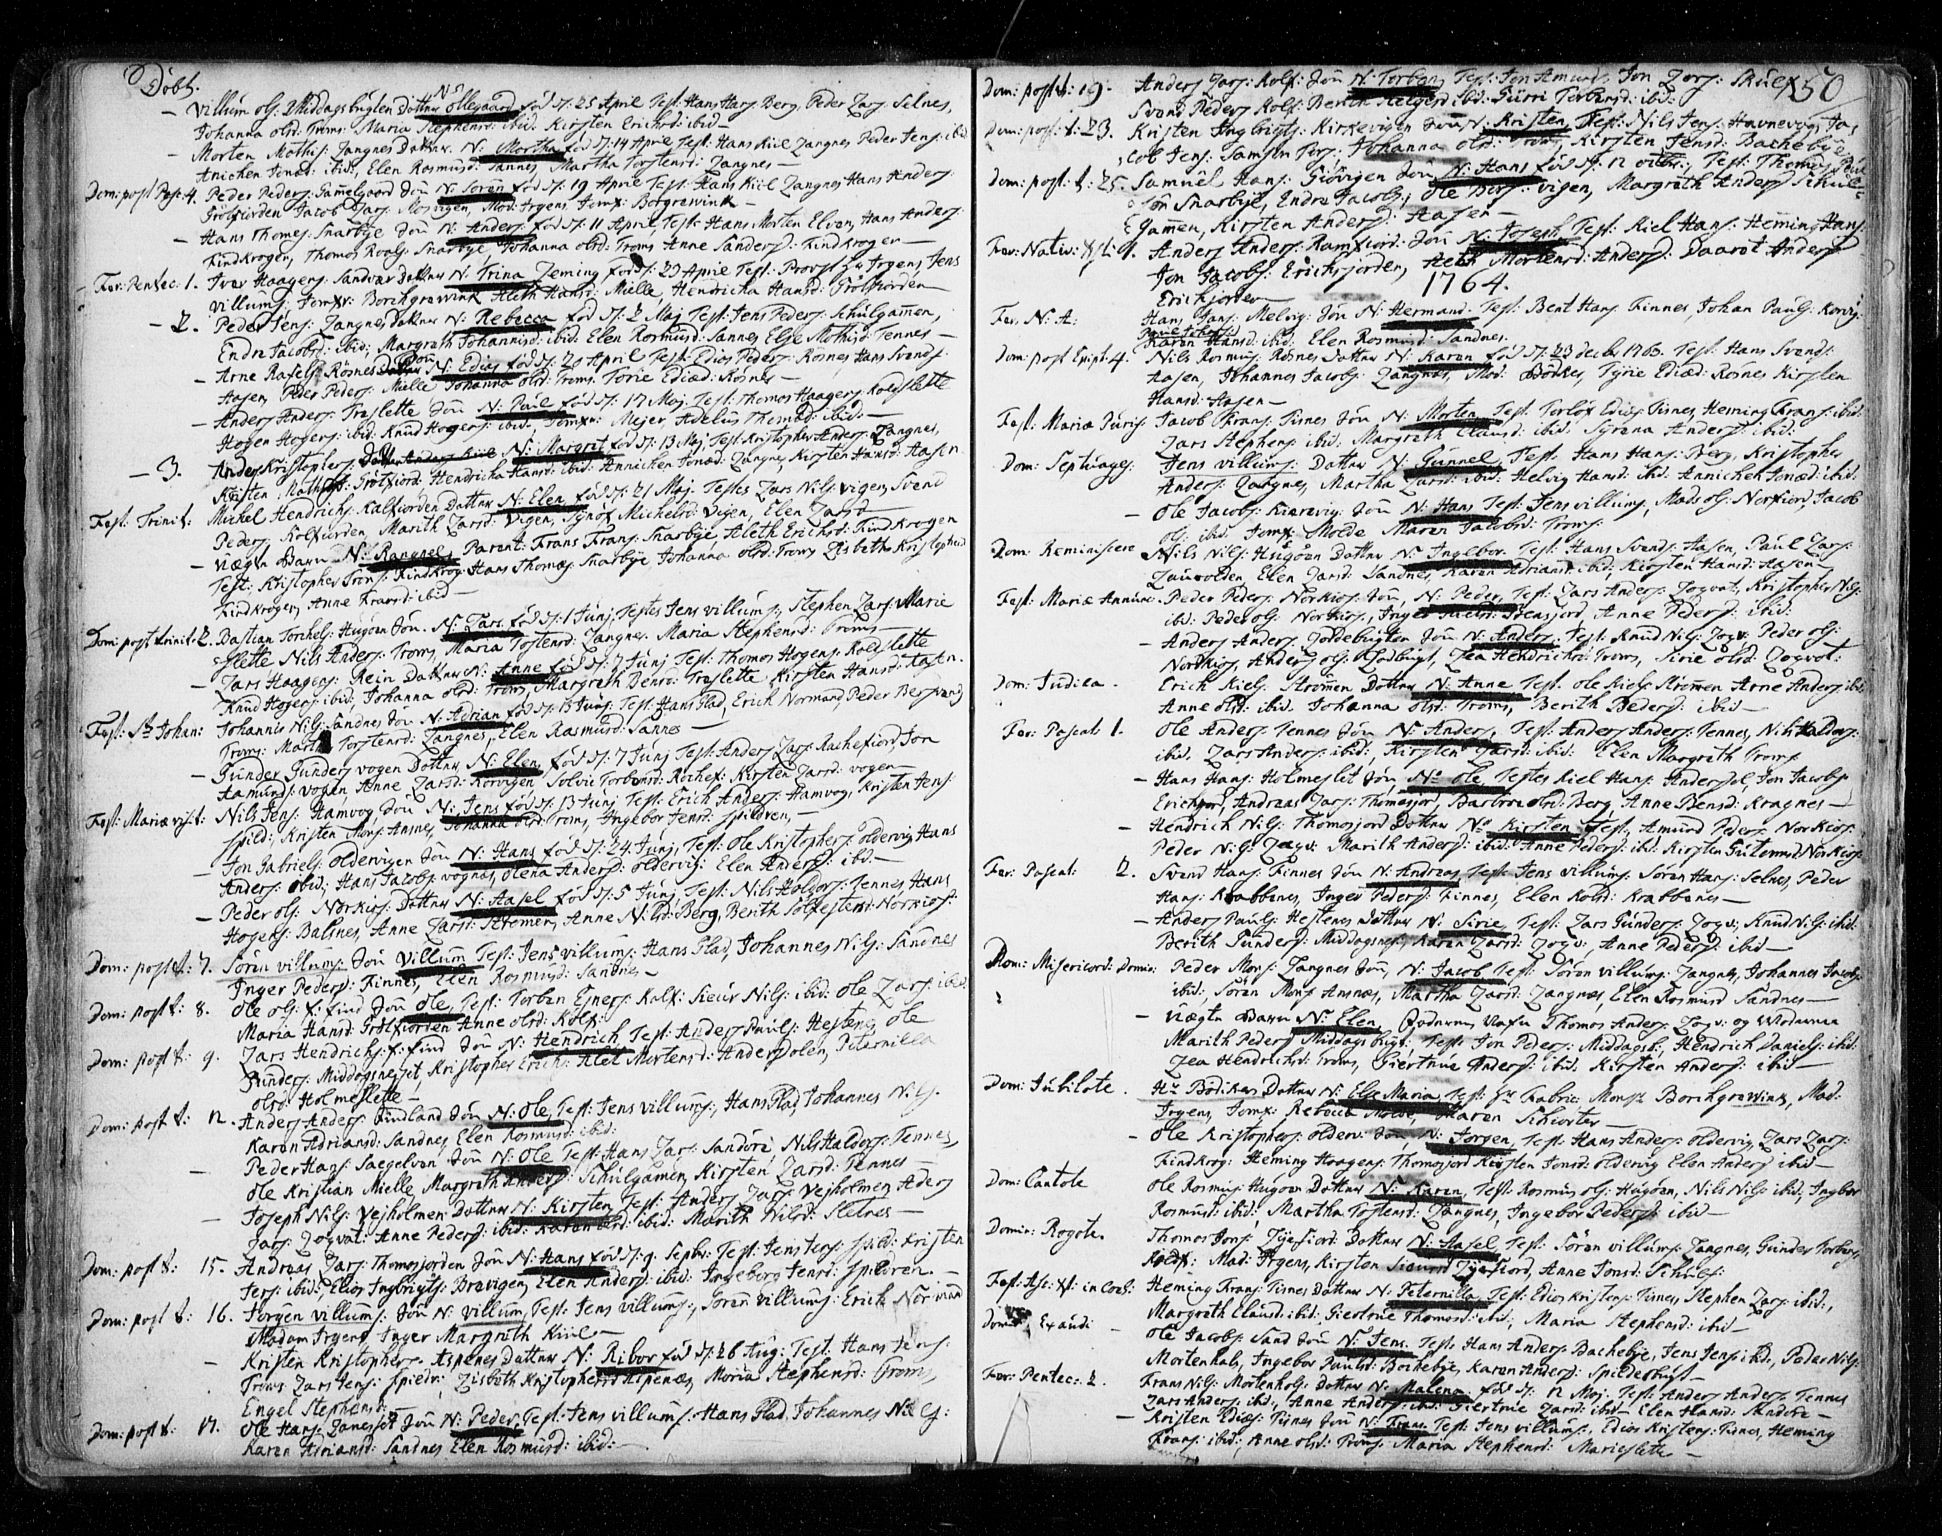 Döbt.
– Villum ols: Middagsbugten Dotter No Ollegaard fød d: 25 April Test: Hans Hars: Berg, Peder Lars: Selnes,
Johanna olsd: Troms: Maria Stephensd: ibid: Kirsten Erichsd: ibid –
– Morten Mathis: Langnes Dotter N: Martha fød d: 14 April Test: Hans Kiil Langnes Peder Jens: ibid
Anichen Jonæd: ibid, Elen Rasmusd: Sannes, Martha Torstensd: Langnes –
Dom: post Pasc: 4. Peder Peders: Gammelgaard Søn N: Søren fød d: 19 April Test: Hans Kiil Langnes Hans Anders:
Grøtfiorden Jacob Lars: Mosvigen, Mad: Irgens, Jomfr: Borgrewink –
– Hans Thomes: Snarbye Søn N: Anders fød d: 11 April, Test: Hans Morten Elven, Hans Anders:
Kindkrogen, Thomas Roals: Snarbye Johanna olsd: Troms Anne Sandersd: Kindkrogen –
Fer: Pentec: 1. Iver Haagens: Sandvær Dotter N: Trina Heming fød d: 29 April Test: Provst Hr Irgens, Jens
Villums: Jomfr: Borchgrewink Aleth Hansd: Mielle Hendricha Hansd: Grøtfiorden
– 2. Peder Jens: Langnes Dotter N: Rebecca fød d: 2 Maj Test: Jens Peders: Schulgamen,
Endre Jacobs: ibid, Margrath Johannisd: ibid: Elen Rasmusd: Sannes Else Mathisd: Tennes –
– Arne Rafels: Røsnes Søn N: Edias fød d: 20 April Test: Edias Peders: Røsnes Hans Svends:
Aasen, Peder Peders: Mielle Johanna olsd: Troms. Torie Ediæd: Røsnes –
– Anders Anders: Træslette Søn N: Povel fød d: 17 Maj. Test: Thomas Haagens: Koldslette
Hogen Hogens: ibid: Knud Hogens: ibid, Jomfr: Mejer, Adelus Thomæd: ibid: –
– 3. Anders Kristophers: N: Margret fød d: 13 Maj Test: Kristopher Anders: Langnes,
Kirsten Mathisd: Grøtfiord: Hendricha Hansd: ibid: Annichen Jonæd: Langnes, Kirsten Hansd: Aasen
Fest: Trinit: Michel Hendrichs: Kalfiorden Dotter N: Elen fød d: 21 Maj. Testes Lars Nils: vigen, Svend
Peders: Kolfiorden Marith Larsd: Vigen, Synøv Michelsd: Vigen, Elen Larsd –
– Uægte Barn N: Rangnel, Parent: Frans Frans: Snarbye, Aleth Erichsd: Kindkrogen
Test: Kristopher Frans: Kindkrog: Hans Thomes: Snarbye Johanna olsd: Troms Lisbeth Kristophersd
Kindkrogen, Anne Fransd: ibid –
Dom: post trinit: 2. Bastian Torchels: Hugøen Søn. N: Lars fød d: 1 Junj, Testes Jens Villums, Stephen Lars: Marie
slette Nils Anders: Troms, Maria Torstensd: Langnes. Maria Stephensd: Troms –
– Lars Haagens: Rein Dotter N: Anne fød d: 7 Junj Test: Thomas Hogens: Koldslette
Knud Hogens: ibid, Johanna olsd: Troms, Margreth Bensd: Træslette Kirsten Hansd: Aasen.
Fest: St Johan: Johannis Nils: Sandnes Søn N: Adrian fød d: 15 Junj Test: Hans Flad, Erich Normand Peder Bergvand
Troms: Martha Torstensd: Langnes, Elen Rasmusd: Sannes –
– Gunder Gunders: vogen Dotter N: Elen fød d: 7 Junj Test: Anders Lars: Rachefiord Jon
Aamunds: vogen Anne Larsd: Korvigen Solvie Torbensd: Rochef: Kirsten Larsd: vogen –
Fest: Mariæ visit: Nils Jens: Hamvog Søn N: Jens fød d: 13 Junj Test: Erich Anders: Hamvog, Kristen Jens:
spild:, Kristen Mons: Ansnes, Johanna olsd: Troms, Ingebor Jensd: Spildren, –
– Jon Gabriels: Oldervigen Søn N: Hans fød d: 24 Junj, Test: Ole Kristophers: oldervig Hans
Anders: ibid; Hans Jacobs: vognes, Olena Andersd: oldervig: Elen Andersd: ibd. –
– Peder ols: Norkios: Dotter N: Aasel fød d: 5 Junj Test: Nils Haldors: Tennes, Hans
Hogens: Balsnes, Anne Larsd: Strømen, Anne Nilsd: Berg, Berith Solfestersd: Norkios:
Dom: post t: 7. Søren Villums: Søn Villum Test: Jens Villums: Hans Flad, Johannes Nils: Sandnes
Inger Pedersd: Finnes, Elen Rasmusd: Sandnes –
Dom: post t: 8. Ole ols: t: find Søn Ole, Test: Torben Ejners: Kalf: Sieur Nils: ibid: Ole Lars: ibid.
Maria Hansd: Grøtfiorden Anne olsd: Kalf:
Dom: post t: 9. Lars Hendrichs: t: find Søn N: Hendrich Test: Anders Pauls: Hestenes, Ole
Gunders: Middagsneset, Kristopher Erichs: Alet Mortensd: Andersdalen, Peternilla
olsd: Holmeslette –
Dom: post t: 12. Anders Anders: Finland Søn N: Ole, Test: Jens Villums:, Hans Flad, Johannes Nils:
Karen Adriansd: Sandnes, Elen Rosmusd: ibid:
– Peder Hans: Saegelven Søn N: Ole Test: Hans Lars: Sandøri, Nils Haldors: Tennes,
Ole Kristian Mielle Margreth Andersd: Schulgamen, Kirsten Larsd: Tennes –
– Joseph Nils: Vejholmen Dotter N: Kirsten, Test: Anders Lars: Vejholmen Anders
Lars: Logvat: Anne Pedersd: ibid: Karen olsd: ibid: Marith Nilsd: Sletnes –
Dom: post t: 15. Andreas Lars: Thomasjorden Søn N: Hans fød d: 9. Septbr: Test: Jens Iers: Spild: Kristen
Iers: ibid:, Elias Ingbrigts: Bravigen, Elen Andersd: ibid: Ingeborg Jensd: Spildren. –
Dom: post t: 16. Jørgen Villums: Søn N: Villum, Test: Jens Villums:, Søren Villums: Erich Normand
Madam Irgens, Inger Margreth Kiil –
– Kristen Kristophers: Aspenes Dotter N: Ribor fød d: 26 Aug: Test: Hans Jens:
Troms Lars Jens: Spildr: Lisbeth Kristophersd Aspenes, Maria Stephensd: Troms,
Engel Stephensd: –
Dom: post t: 17. Ole Hans: Lanesset Søn N: Peder, Test: Jens Villums: Hans Flad, Johannes Nils:
Karen Adriansd: Sandnes Elen Rosmusd: ibid: –
150
Dom: post t: 19. Anders Lars: Kolf: Søn N: Torben, Test: Jon Amunds, Jon Lars:
Svend Peders Kolf: Berith Helgesd ibid: Gurri Torbensd: ibid:
Dom: post: t: 23. Kristen Ingbrigts: Kirkevigen Søn N: Kristen, Test: Nils Jens: Havnevog, Ja-
cob Jens: Samson Pers:, Johanna olsd: Troms, Kirsten Jensd: Bachebye:
Dom: post: t: 25. Samuel Hans: Giövigen Søn N: Hans fød d: 12 Test: Thomas
Søn Snarbye, Endre Jacobs: Ole vigen, Margrath Andersd Schul-
Gamen, Kirsten Andersd: Aasen –
Fer: Nativ: Xsti: 1. Anders Anders: Ramfiord: Søn N: Joseph Test: Kiel Hans: Heming Hans:
Jon Jacobs: Erichsjorden, Aleth Mortensd: Andersd: Daarat Andersd
Erichjorden –
1764.
Fer. N: A: Hans Jans: Melvig: Søn N: Hermand: Test: Bent Hans: Finnes, Johan Pauls: Korvig:
Karen Hansd: ibid: Elen Rosmusd: Sandnes.
Dom: post Epiph: 4. Nils Rasmus: Røsnes Dotter N: Karen fød d: 23 decbr 1763. Test: Hans Svends:
Aasen, Johannes Jacobs: Langnes, Mod: Tyrie Ediæd: Rosnes Kirsten
Hansd: Aasen –
Fest: Mariæ Purif: Jacob Frans: Tisnes Søn N: Morten Test: Torlof Edias: Tisnes, Heming Frans: ibid:
Lars Stephens: ibid: Margreth Clausd: ibid: Syrena Andersd: ibid:
Dom: Septuages: Jens Villums: Dotter N: Gunnel, Test: Hans Hans: Berg, Kristopher
Anders: Langnes, Martha Larsd: ibid: Helvig Hansd: ibid: Annichen Jonæd: ibid:
– Ole Jacobs: Kiærevig: Søn N: Hans Test: Jens Villums, Mads ols: Norkiord, Jacob
ols: ibid: Jomfr: Molde Maren Jacobsd: Troms:
Dom: Reminiscere Nils Nils: Hugøen Dotter N: Ingebor. Test: Hans Svends: Aasen, Paul Lars:
Zauvolden, Elen Larsd: Sandnes, Karen Adriansd: ibid, Kirsten Hansd: Aasen –
Fest: Mariæ Annunc. Peder Peders: Norkios: Søn, N: Peder, Test: Lars Anders: Logvat, Kristopher Nils:
ibid: Peder ols: Norkios:, Inger Anne Pedersd: ibid:
– Anders Anders: Søn N: Anders. Test: Knud Nils: Logv: Peder ols:
Norkios, Anders ols: Lea Hendrichsd: Troms, Sirie olsd: Logvat:
Dom: Judica. Erich Kiels: Strømen Dotter N: Anne Test. Ole Kiels: Strømen Arne Anders: ibid:
Anne olsd: ibid: Johanna olsd: Troms, Berith Pedersd: ibid –
Fer: Pascat: 1. Ole Anders: Tennes Søn N: Anders, Test: Anders Anders: Tennes, Nils Haldors:
ibid, Lars Anders: ibid:, Kirsten Larsd: ibid: Elen Margreth Troms
– Hans Hans: Holmeslet Søn No Ole, Testes Kiel Hans: Andersdal, Jon Jacobs:
Erichjord, Andreas Lars: Thomasjor, Barbroe olsd: Berg Anne Bensd: Kragnes –
– Hendrich Nils: Thomasjord Dotter No Kirsten Test: Amund Peders: Norkios:
Peder Nils: Logv: Marith Andersd: ibid: Anne Pedersd: ibid: Kirsten Guttormsd: Norkios
Fer: Pascat: 2. Svend Hans: Finnes Søn N: Andreas Test: Jens Villums: Søren Hans: Selnes, Peder
Hans: Krabbenes, Inger Pedersd: Finnes, Elen Kolsd: Krabbenes –
– Anders Pauls: Hestenes Dotter N: Sirie, Test: Lars Gunders: Logv:, Knud Nils: ibid:
Berith Gundersd: Middagsnes, Karen Larsd: Logv: Anne Pedersd: ibid –
Dom: Misericord: Domin: Peder Mons: Langnes Søn, N: Jacob, Test: Søren Villums: Langnes, Johannes Jacobs:
ibid:, Søren Mons: Ansnæs, Martha Larsd: Langnæs, Elen Rosmusd Sandnes –
– Uægte Barn N: Elen, Thomas Anders: Logv: og Moderen
Marith Pedersd Middags bugt. Test: Jon Peders: Middagsb:, Hendrich Daniels: ibid:
Lea Hendrichsd: Troms, Giertrue Andersd: ibid. Kirsten Andersd: ibid –
Dom: Jubilate. Hr Bødikers Dotter N: Else Maria, Test: Hr Fabric: Monsr Borchgrewink, Mad:
Irgens, Jomfr: Rebecca Molde, Maren Schiorter –
– Ole Kristophers: olderv: Søn N: Jørgen, Test: Hans Anders: oldervig Lars Lars:
Kindkrog: Heming Haagens: Thomasjord Kirsten Jonsd: oldervig Elen Andersd ibid –
Dom: Cantate Ole Rasmus: Hugøen Dotter N: Karen, Test: Rosmus ols: Hugøen, Nils Nils: ibid, Ingbor
Rosmusd: ibid: Martha Torstensd: Langnes, Ingebor Pedersd: ibid –
Domin: Rogate. Thomas Jons: Dotter N: Aasel Test: Søren Villums: Langnes, Gunder Torbens:
Kalf: Mad: Irgens, Kirsten Sieursd Anne Jonsd: Schulg:
Fest: Asc: Xti: in Coel: Heming Frans: Tisnes Dotter N: Peternilla, Test: Edias Kristens: Tisnes, Stephen Lars: ibid:,
Margreth Clausd: ibid: Giertrue Thomasd: ibid, Maria Stephensd: ibid –
Dom: Exaudi – Ole Jacobs: Sand Søn N: Jens. Test: Hans Anders: Bachebye, Jens Jens: ibid:, Peder Nils:
Mortenhals, Ingebor Paulsd: Bachebye, Karen Andersd: Spilderbugt –
Fer: Pentec: 2. Frans Nils: Mortenhals: Dotter N: Malena, fød d: 12 Maj. Test: Anders Anders: Tennes
Lars Anders: ibid:, Anne Andersd: ibid: Giertrue Larsd: ibid – Elen Hansd: Sandøre –
– Kristen Edias: Tisnes Søn N: Frans Test: Jens Villums:, Edias Kristens: Tisnes, Heming
Frans: ibid:, Anne olsd: Troms: Maria Stephensd: Marieslette –